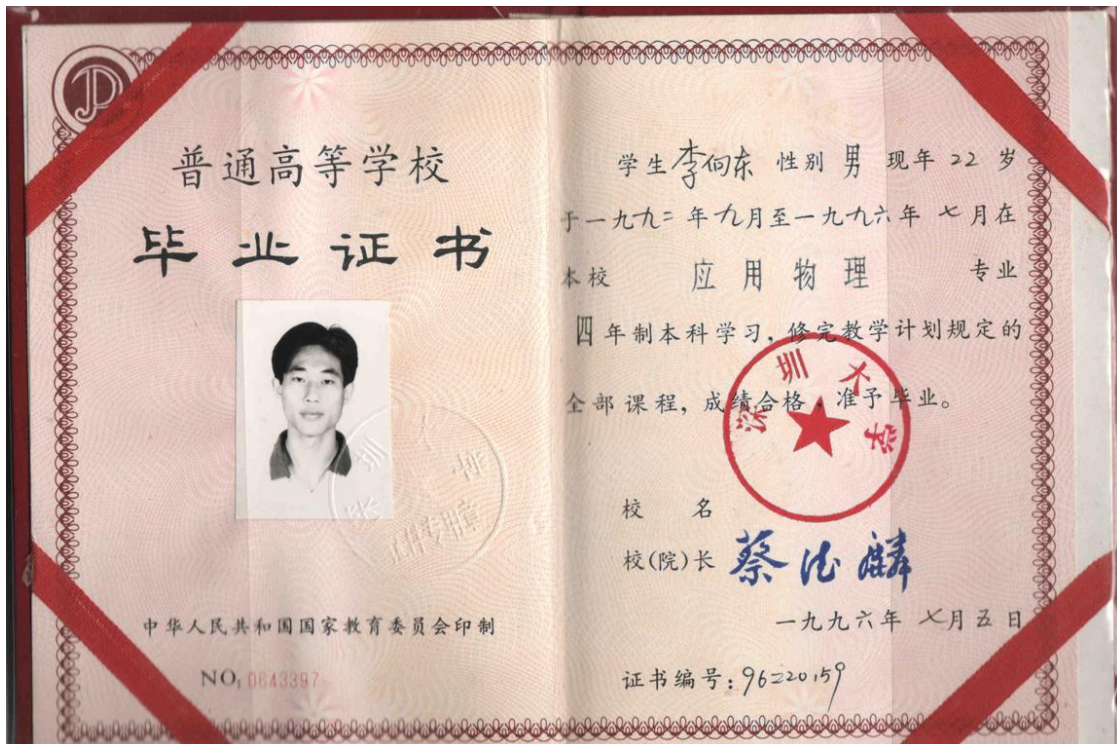 普通高等学校
毕业证书
中华人民共和国国家教育委员会印制
NO: 0643397
学生 李向东 性别 男 现年 22 岁
于一九九二年九月至一九九六年七月在
本校 应用物理 专业
四年制本科学习，修完教学计划规定的
全部课程，成绩合格，准予毕业。
深圳大学
校 名
校(院)长 蔡德麟
一九九六年七月五日
证书编号：96220159